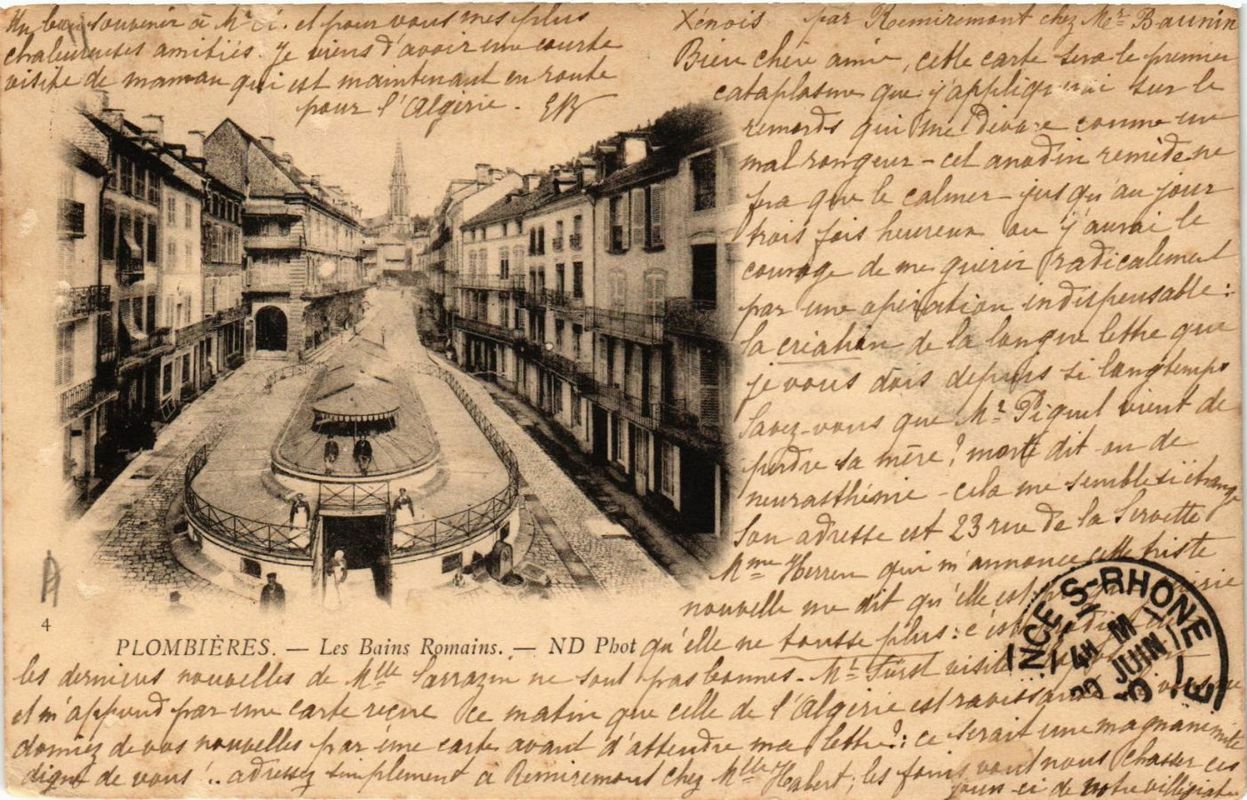 Xénois par Remiremont chez Mr. Baunin
Bien chère amie, cette carte sera le premier
cataplasme que j'appliquerai sur le
remords qui me dévore comme un
mal rongeur - cet anodin remède ne
fra que le calmer jusqu'au jour
trois fois heureux ou j'aurai le
courage de me guérir radicalement
par une opération indispensable:
la création de la longue lettre que
je vous dois depuis si longtemps
Savez-vous que Mr. Piguet vient de
perdre sa mère! morte dit-on de
neurasthénie - cela me semble si étrange
Son adresse est 23 rue de la Servette
Mme Herren qui m'annonce cette triste
nouvelle me dit qu'elle est
qu'elle ne tousse plus:
les dernières nouvelles de Mlle Sarrazin ne sont pas bonnes. Mr. Fürst
et m'apprend par une carte reçue ce matin que celle de l'Algérie est
donniez de vos nouvelles par une carte avant d'attendre ma lettre?: ce serait une magnanimité
digne de vous! .. adressez simplement à Remiremont chez Mlle Habert; les foins vont nous chasser ces
jours-ci de notre
Un bon souvenir à Mr et pour vous mes plus
chaleureuses amitiés. Je viens d'avoir une courte
visite de maman qui est maintenant en route
pour l'Algérie.
4
PLOMBIÈRES. — Les Bains Romains. — ND Phot
NCE S-RHONE
4H M
JUIN
E